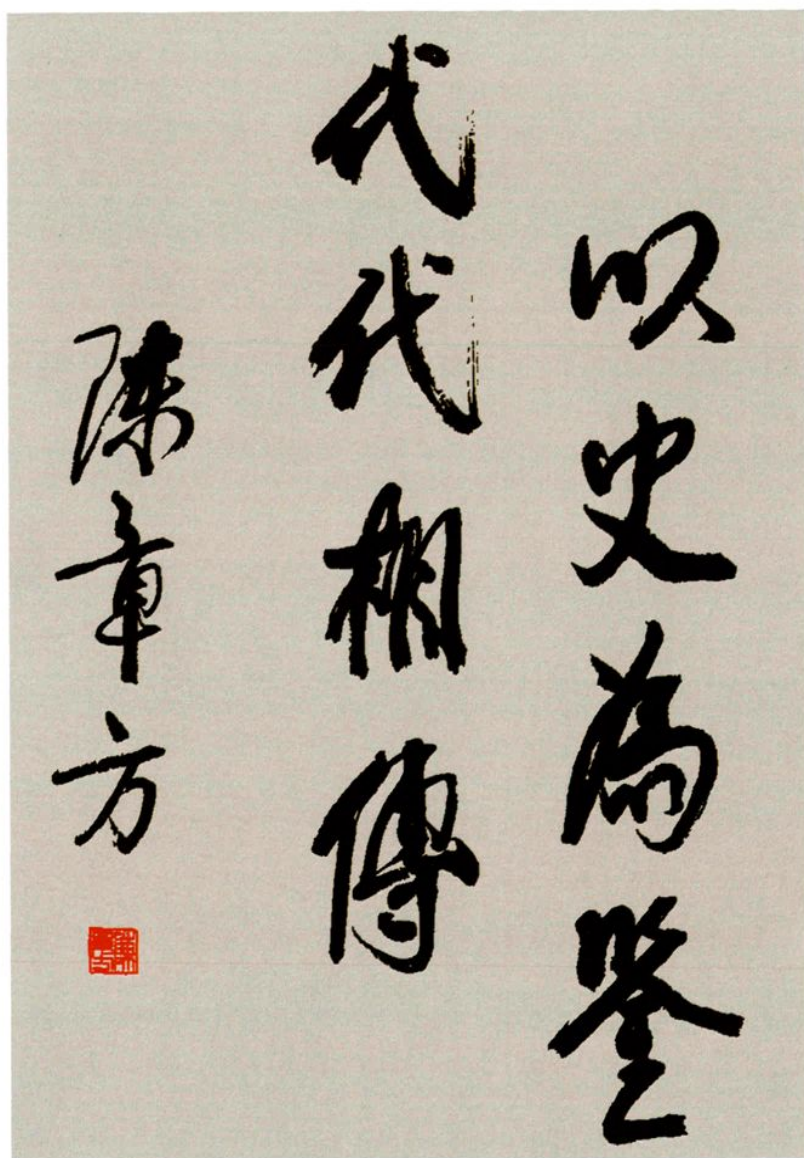 以史為鑒
代代相傳
陈章方